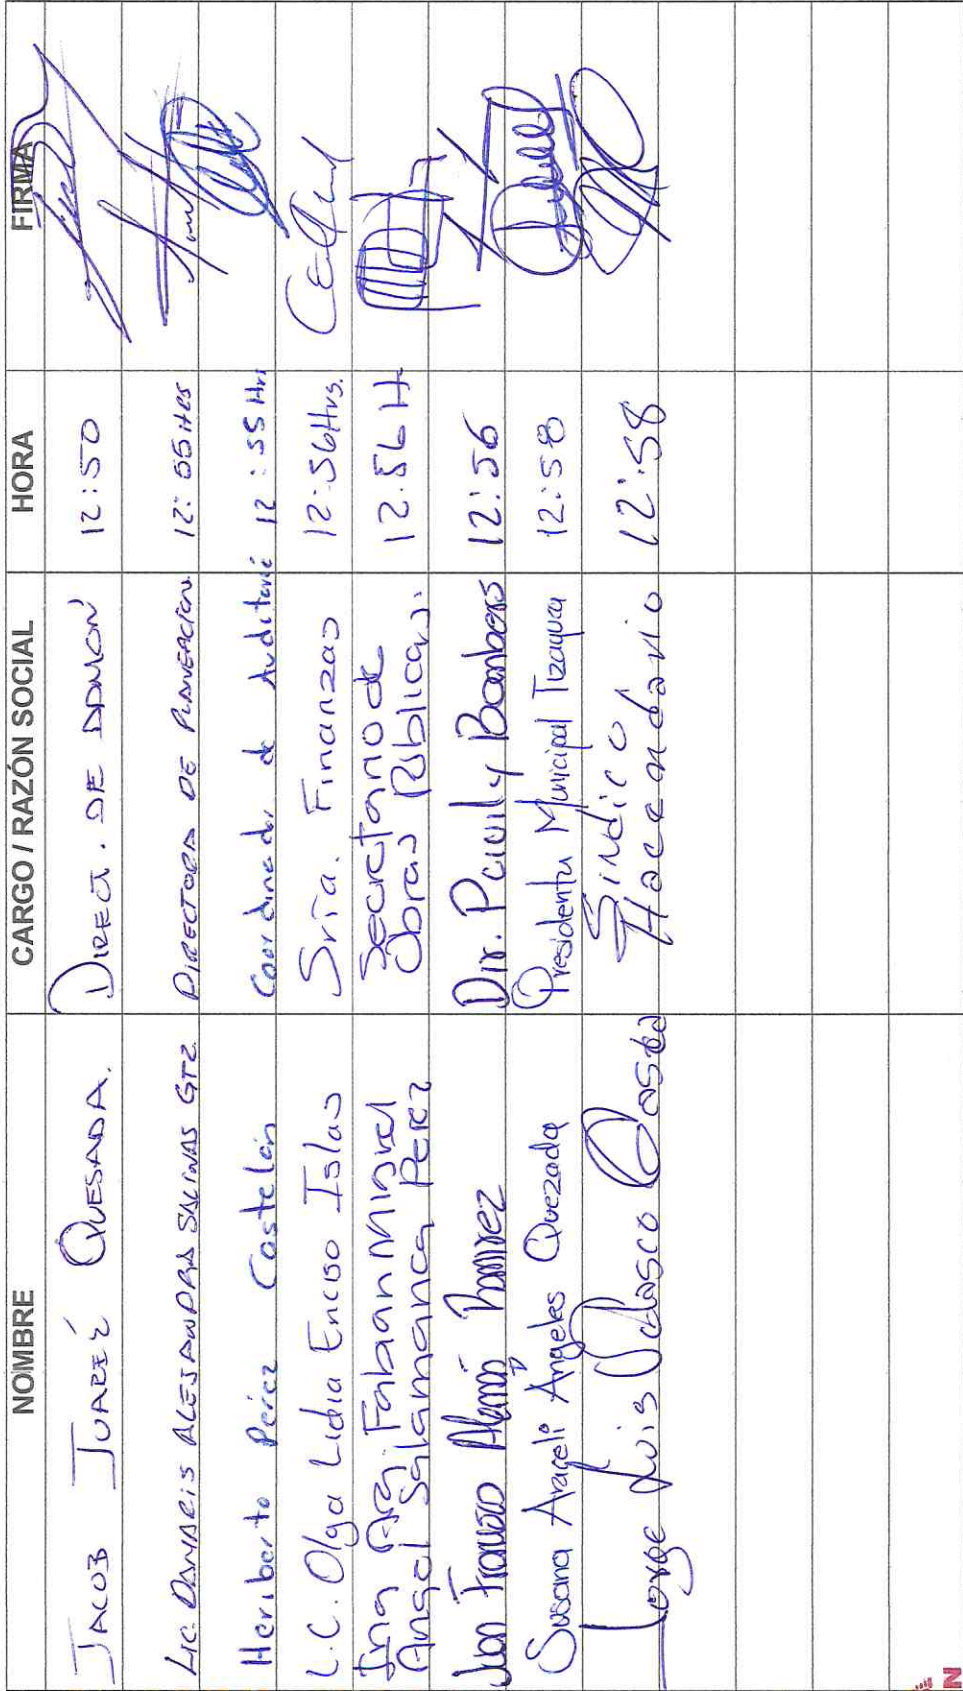 NOMBRE CARGO / RAZÓN SOCIAL HORA FIRMA
JACOB JUAREZ QUESADA. DIRECT. DE ADMON 12:50
LIC. DAMARIS ALEJANDRA SALINAS GTZ. DIRECTORA DE PLANEACION. 12:55 HRS
Heriberto Pérez Castelán Coordinador de Auditoria 12:55 Hrs
L.C. Olga Lidia Enciso Islas Sría. Finanzas 12:56 Hrs.
Ing Arq. Fabian Miguel Secretario de 12:56 H
Angel Salamanca Perez Obras Públicas.
Juan Francisco Alemán Ramirez Dir. P. Civil y Bomberos 12:56
Susana Araceli Ángeles Quezada Presidenta Municipal Tizayuca 12:58
Jorge Luis Velasco Síndico 12:58
Hacendario